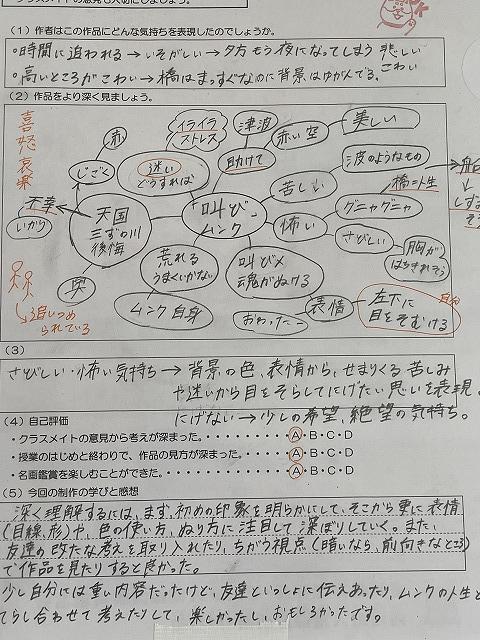 クラスメイトの意見も大切にしましょう。
OK
(1) 作者はこの作品にどんな気持ちを表現したのでしょうか。
・時間に追われる→いそがしい→夕方もう夜になってしまう 悲しい
・高いところがこわい→橋はまっすぐなのに背景はゆがんでる。こわい
(2) 作品をより深く見ましょう。
喜怒哀楽
赤
イライラ
ストレス
津波
赤い空
美しい
じごく
迷い
どうすれば
助けて
苦しい
波のようなもの
橋=人生
船
不幸
いかり
天国
三ずの川
後悔
「叫び」
ムンク
怖い
グニャグニャ
さびしい
胸が
はちきれそう
荒れる
うまくいかない
叫び×
魂がぬける
ムンク自身
おわったー
表情
左下に
目をそむける
自分
追いつめ
られている
(3)
さびしい・怖い気持ち→背景の色、表情から、せまりくる苦しみ
や迷いから目をそらしてにげたい思いを表現。
にげない→少しの希望、絶望の気持ち。
(4) 自己評価
・クラスメイトの意見から考えが深まった。・・・・・・・・・・A・B・C・D
・授業のはじめと終わりで、作品の見方が深まった。・・・・・・A・B・C・D
・名画鑑賞を楽しむことができた。・・・・・・・・・・・・・・A・B・C・D
(5) 今回の制作の学びと感想
深く理解するには、まず、初めの印象を明らかにして、そこから更に表情
(目線、形)や、色の使い方、ぬり方に注目して深ぼりしていく。また、
友達の改たな考えを取り入れたり、ちがう視点(暗いなら、前向きなところ)
で作品を見たりすると良かった。
少し自分には重い内容だったけど、友達といっしょに伝えあったり、ムンクの人生と
てらし合わせて考えたりして、楽しかったし、おもしろかったです。